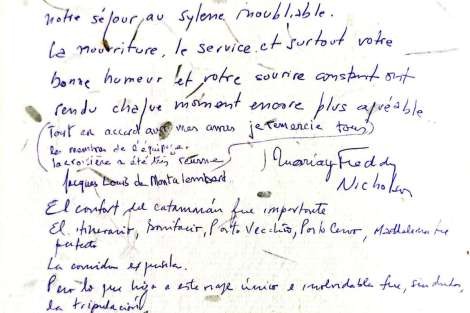 notre séjour au Sylene inoubliable.
La nourriture, le service et surtout votre
bonne humeur et votre sourire constant ont
rendu chaque moment encore plus agréable
(Tout en accord avec mes amis je remercie tous)
les membres de l'équipage.
la croisière a été très réussie)
Jacques Louis de Montalembert
Freddy
Nicholas
El confort del catamarán fue importante
El itinerario, Bonifacio, Porto Vecchio, Porto Cervo, Maddalena fue
perfecto
La comida exquisita.
Pero lo que hizo a este viaje único e inolvidable fue, sin dudas,
la tripulación,